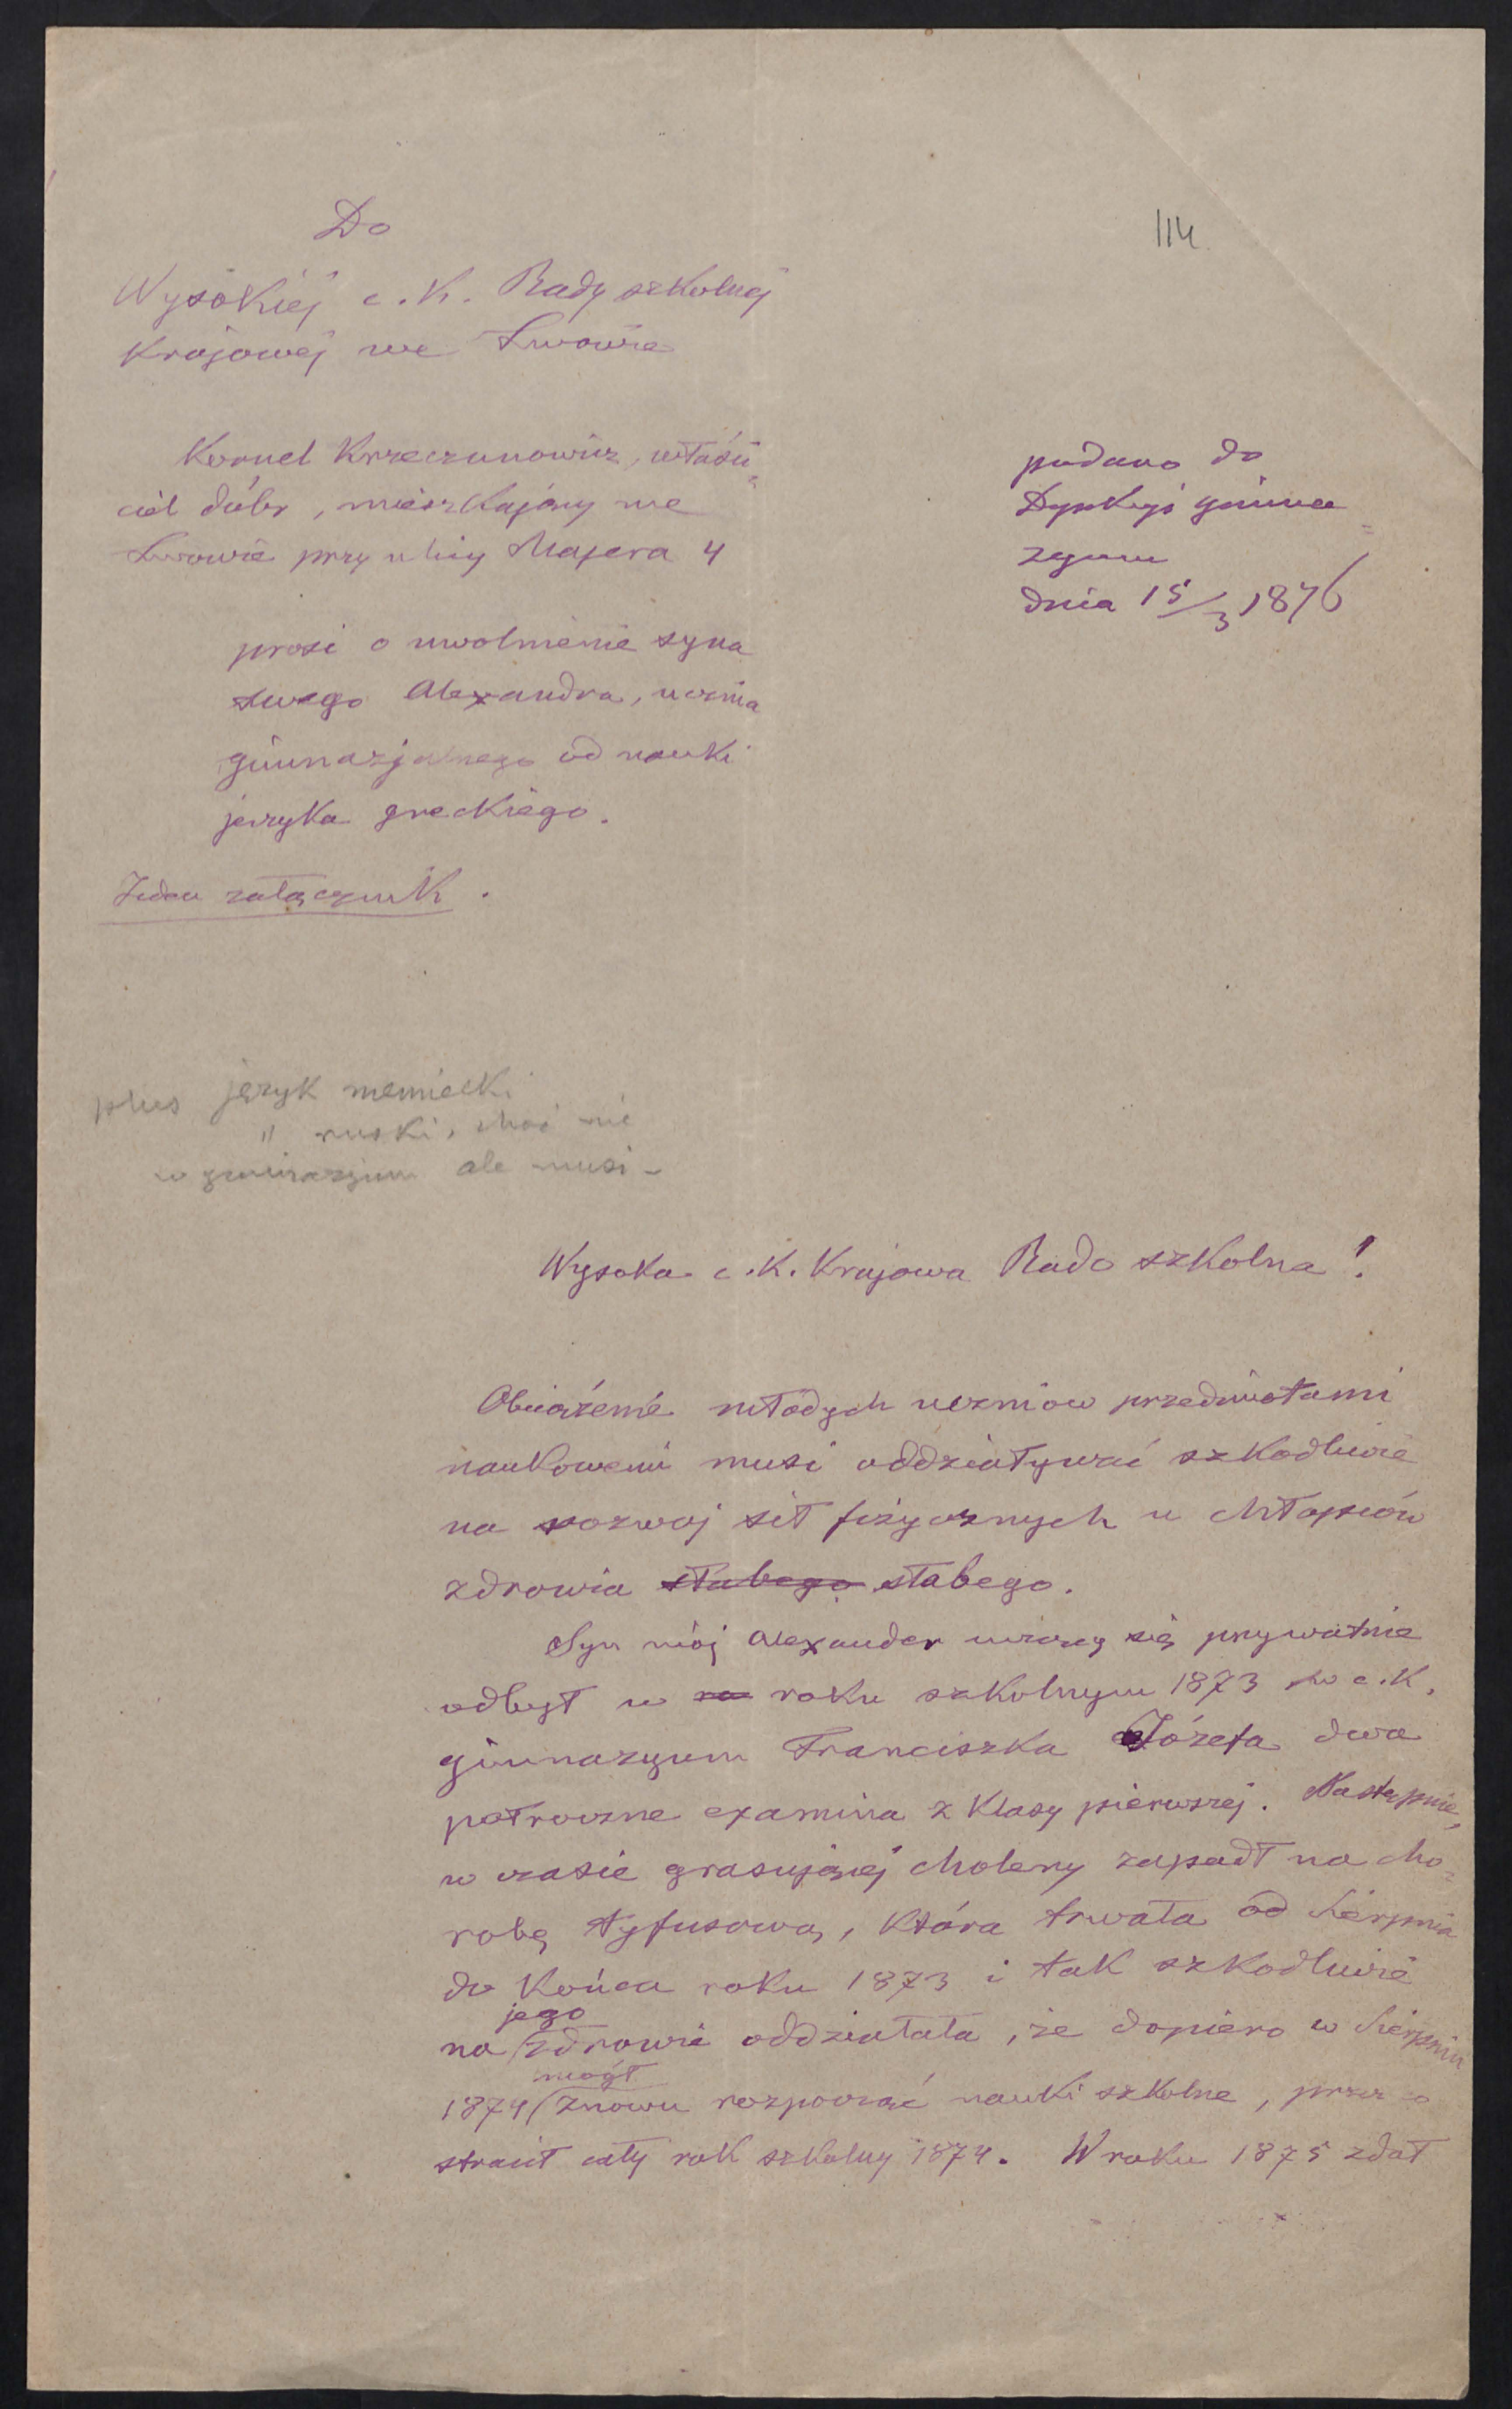 114
Do
Wysokiéj c. K. Rady szkolnéj
Krajowéj we Lwowie
Kornel Krzeczunowicz, właści=
ciel dóbr, mieszkający we
Lwowie przy ulicy Majera 4
podano do
Dyrekcyi gimna=
zyum
dnia 15/3 1876
prosi o uwolnienie syna
swego Alexandra, ucznia
gimnazjalnego od nauki
języka greckiego.
Jeden załącznik.
plus język niemiecki
" ruski, choć nie
w gimnazyum ale musi –
Wysoka c. K. Krajowa Rado szkolna!
Obciążenie młodych uczniów przedmiotami
naukowemi musi oddziaływać szkodliwie
na rozwój sił fizycznych u chłopców
zdrowia słabego słabego.
Syn mój Alexander ucząc się prywatnie
odbył w ro roku szkolnym 1873 w c. K.
gimnazyum Franciszka Józefa dwa
półroczne examina z Klasy pierwszej. Następnie,
w czasie grasującéj cholery zapadł na cho=
robę tyfusową, która trwała od Sierpnia
do Końca roku 1873 i tak szkodliwie
na jego zdrowie oddziałała, że dopiero w Sierpniu
1874 mógł znowu rozpocząć nauki szkolne, przez co
stracił cały rok szkolny 1874. W roku 1875 zdał